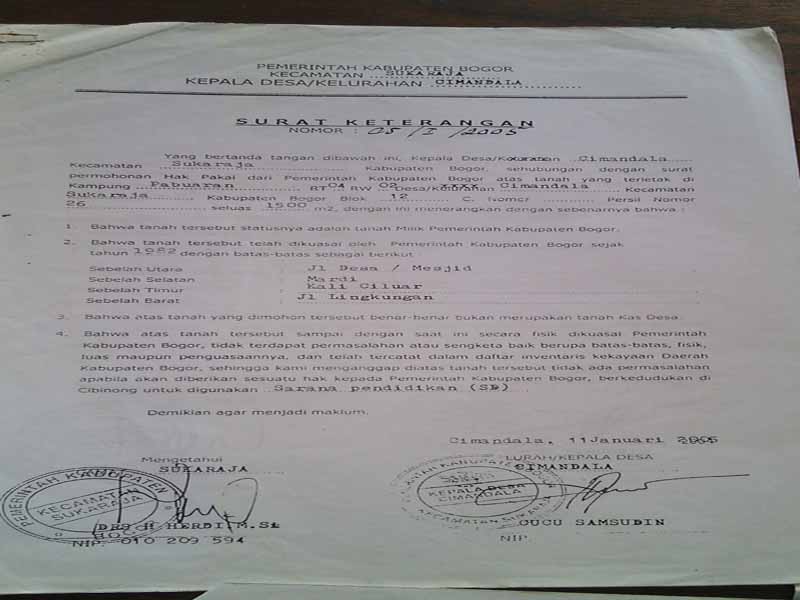 PEMERINTAH KABUPATEN BOGOR
KECAMATAN SUKARAJA
KEPALA DESA/KELURAHAN CIMANDALA
SURAT KETERANGAN
NOMOR : 05/I/2005
Yang bertanda tangan dibawah ini, Kepala Desa/Kelurahan Cimandala
Kecamatan Sukaraja Kabupaten Bogor, sehubungan dengan surat
permohonan Hak Pakai dari Pemerintah Kabupaten Bogor atas tanah yang terletak di
Kampung Pabuaran RT 04 RW 02 Desa/Kelurahan Cimandala Kecamatan
Sukaraja Kabupaten Bogor Blok 12 C. Nomor Persil Nomor
26 seluas 1500 m2, dengan ini menerangkan dengan sebenarnya bahwa :
1. Bahwa tanah tersebut statusnya adalah tanah Milik Pemerintah Kabupaten Bogor.
2. Bahwa tanah tersebut telah dikuasai oleh Pemerintah Kabupaten Bogor sejak
tahun 1982 dengan batas-batas sebagai berikut :
Sebelah Utara : Jl Desa / Mesjid
Sebelah Selatan : Mardi
Sebelah Timur : Kali Ciluar
Sebelah Barat : Jl Lingkungan
3. Bahwa atas tanah yang dimohon tersebut benar-benar bukan merupakan tanah Kas Desa.
4. Bahwa atas tanah tersebut sampai dengan saat ini secara fisik dikuasai Pemerintah
Kabupaten Bogor, tidak terdapat permasalahan atau sengketa baik berupa batas-batas, fisik,
luas maupun penguasaannya, dan telah tercatat dalam daftar inventaris kekayaan Daerah
Kabupaten Bogor, sehingga kami menganggap diatas tanah tersebut tidak ada permasalahan
apabila akan diberikan sesuatu hak kepada Pemerintah Kabupaten Bogor, berkedudukan di
Cibinong untuk digunakan Sarana pendidikan (SD)
Demikian agar menjadi maklum.
Cimandala, 11 Januari 2005
Mengetahui
SUKARAJA
LURAH/KEPALA DESA
CIMANDALA
PEMERINTAH KABUPATEN
KECAMATAN
SUKARAJA
KEPALA DESA
CIMANDALA
DRS H HERDI M.Si
NIP. 010 209 594
CUCU SAMSUDIN
NIP.